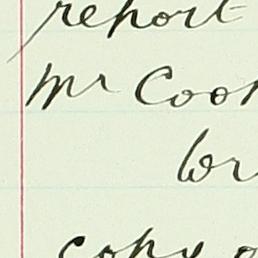 report
Mr Coo
copy o